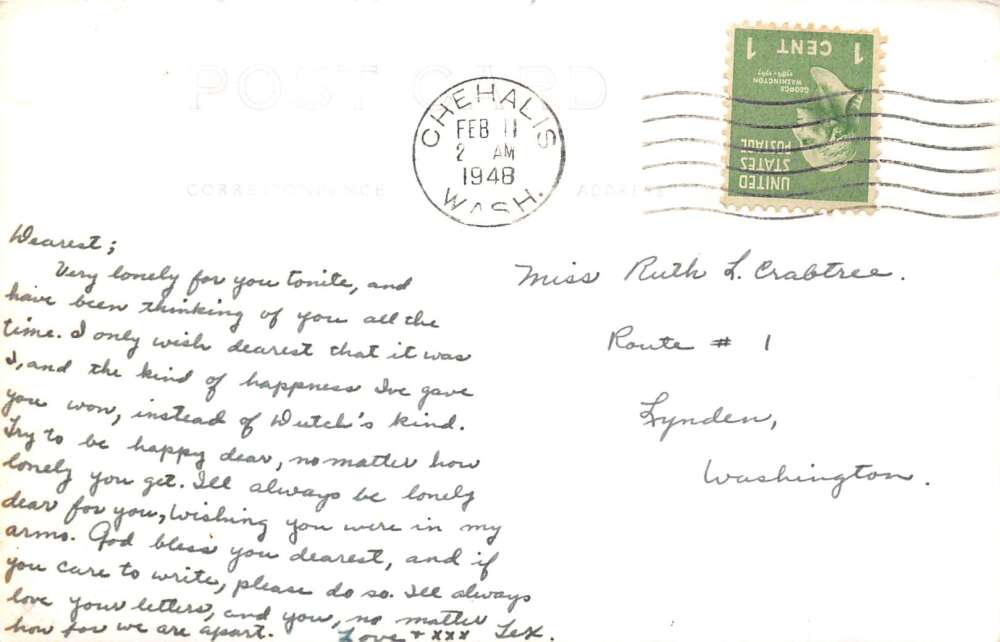 POST CARD
CHEHALIS
FEB 11
2 AM
1948
WASH.
1 CENT 1
GEORGE
WASHINGTON
1789-1797
UNITED
STATES
POSTAGE
CORRESPONDENCE
ADDRESS
Dearest;
Very lonely for you tonite, and
have been thinking of you all the
time. I only wish dearest that it was
I, and the kind of happness I've gave
you won, instead of Dutch's kind.
Try to be happy dear, no matter how
lonely you get. I'll always be lonely
dear for you, wishing you were in my
arms. God bless you dearest, and if
you care to write, please do so. I'll always
love your letters, and you, no matter
how far we are apart. Love + xxx Tex.
Miss Ruth L. Crabtree.
Route # 1
Lynden,
Washington.